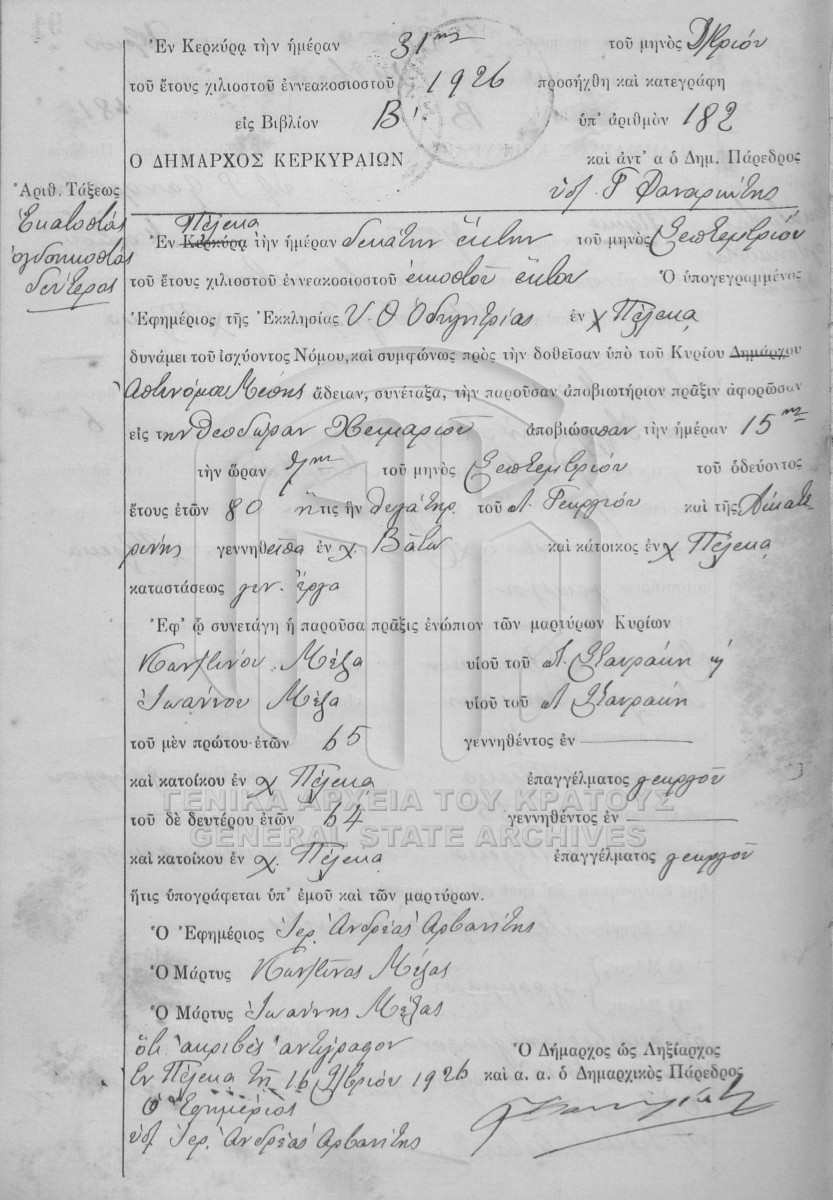 Ἐν Κερκύρᾳ τὴν ἡμέραν 31ην τοῦ μηνὸς Δ/βρίου
τοῦ ἔτους χιλιοστοῦ ἐννεακοσιοστοῦ 1926 προσήχθη καὶ κατεγράφη
εἰς Βιβλίον Β'. ὑπ' ἀριθμὸν 182
Ο ΔΗΜΑΡΧΟΣ ΚΕΡΚΥΡΑΙΩΝ καὶ ἀντ' α ὁ Δημ. Πάρεδρος
Ἀριθ. Τάξεως
Ἑκατοστὸς
ὀγδοηκοστὸς
δεύτερος
Πέλεκα
Ἐν Κερκύρᾳ τὴν ἡμέραν δεκάτην ἕκτην τοῦ μηνὸς Σεπτεμβρίου
τοῦ ἔτους χιλιοστοῦ ἐννεακοσιοστοῦ εἰκοστοῦ ἕκτου Ὁ ὑπογεγραμμένος
Ἐφημέριος τῆς Ἐκκλησίας Υ. Θ Ὁδηγητρίας ἐν χ Πέλεκα
δυνάμει τοῦ ἰσχύοντος Νόμου, καὶ συμφώνως πρὸς τὴν δοθεῖσαν ὑπὸ τοῦ Κυρίου Δημάρχου
Ἀστυνόμου Μέσης ἄδειαν, συνέταξα, τὴν παροῦσαν ἀποβιωτήριον πρᾶξιν ἀφορῶσαν
εἰς την Θεοδώραν Χειμαριοῦ ἀποβιώσασαν τὴν ἡμέραν 15ην
τὴν ὥραν 7ην τοῦ μηνὸς Σεπτεμβρίου τοῦ ὁδεύοντος
ἔτους ἐτῶν 80 ἥτις ἦν θυγάτηρ τοῦ Λ. Γεωργίου καὶ τῆς Αἰκατε
ρίνης γεννηθεῖσα ἐν χ. Βάτω καὶ κάτοικος ἐν χ Πέλεκα
καταστάσεως γυν. ἔργα
Ἐφ' ᾧ συνετάγη ἡ παροῦσα πρᾶξις ἐνώπιον τῶν μαρτύρων Κυρίων
Κων/τίνου Μέξα υἱοῦ τοῦ Λ. Σταυράκη κ
Ἰωάννου Μέξα υἱοῦ τοῦ Λ Σταυράκη
τοῦ μὲν πρώτου ἐτῶν 65 γεννηθέντος ἐν
καὶ κατοίκου ἐν χ Πέλεκα ἐπαγγέλματος γεωργοῦ
ΓΕΝΙΚΑ ΑΡΧΕΙΑ ΤΟΥ ΚΡΑΤΟΥΣ
τοῦ δὲ δευτέρου ἐτῶν 64 γεννηθέντος ἐν
GENERAL STATE ARCHIVES
καὶ κατοίκου ἐν χ. Πέλεκα ἐπαγγέλματος γεωργοῦ
ἥτις ὑπογράφεται ὑπ' ἐμοῦ καὶ τῶν μαρτύρων.
Ὁ Ἐφημέριος Ἱερ. Ἀνδρέας Ἀρβανίτης
Ὁ Μάρτυς Κων/τίνος Μέξας
Ὁ Μάρτυς Ἰωάννης Μέξας
ὅτι ἀκριβὲς ἀντίγραφον
Ἐν Πέλεκα τῇ 16 7/βρίου 1926
Ὁ Ἐφημέριος
ὑπ Ἱερ. Ἀνδρέας Ἀρβανίτης
Ὁ Δήμαρχος ὡς Ληξίαρχος
καὶ α. α. ὁ Δημαρχικὸς Πάρεδρος